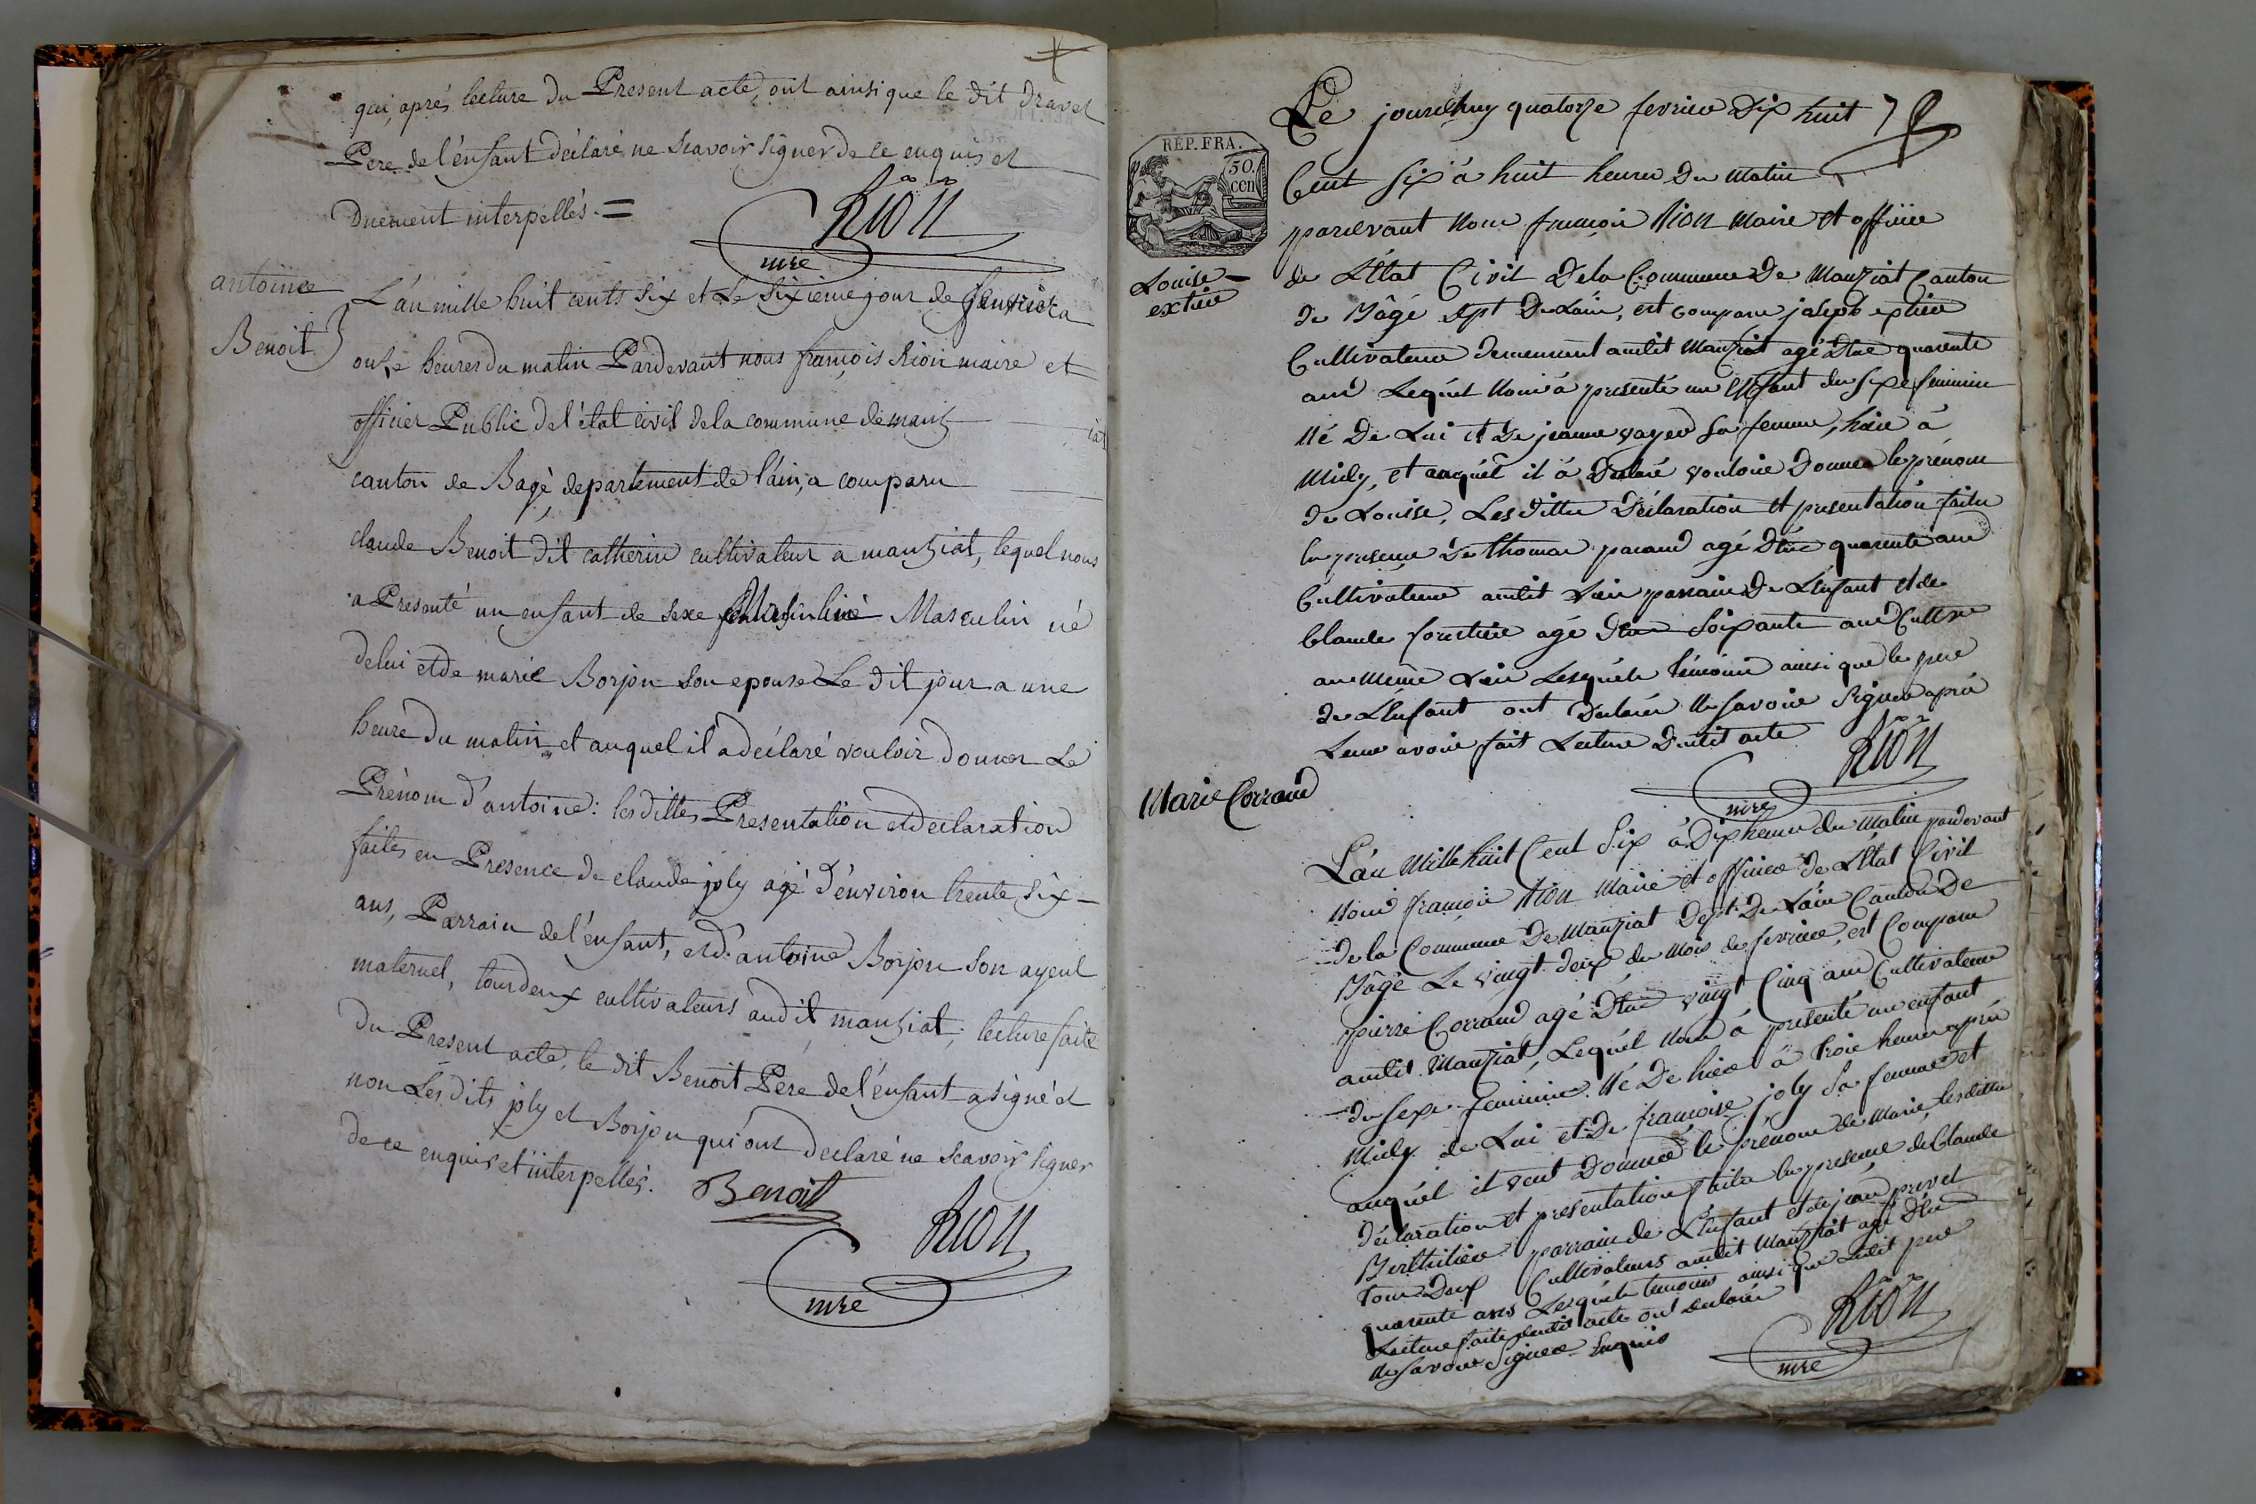 qui, aprés lecture du Present acte, ont ainsi que le dit dravet
Pere de l'énfant déclaré ne scavoir signer de ce enquis et
Duement interpellés. =
Rion
mre
antoine
Benoit
L'án mille huit cents six et Le Sixieme jour de fevrier a
onze heures du matin Pardevant nous françois Rion maire et
officier Public de l'état civil de la commune de manz iat
canton de Bagé departement de l'áin, a comparu
claude Benoit dit catherin cultivateur a manziat, lequel nous
a Presenté un enfant de sexe Masculin né
de lui et de marie Borjon son epouse Le dit jour a une
heure du matin et auquel il a déclaré vouloir donner Le
Prénom d'antoine: les dittes Presentation et declaration
faites en Presence de claude joly agé d'énviron trente six
ans, Parrain de l'énfant, et d'antoine Borjon son ayeul
maternel, tous deux cultivateurs audit manziat; lecture faite
du Present acte, le dit Benoit Pere de l'énfant a signé et
non Les dits joly et Borjon qui ont declaré ne scavoir signer
de ce enquis et interpellés.
Benoit
Rion
mre
REP. FRA.
50.
cen
Le jourdhuy quatorze fevrier Dix huit 7
Cent six à huit heures Du matin
pardevant nous francois Rion maire et officier
de L'Etat Civil De la Commune De Manziat Canton
de Bâgé dept De Lain, est comparu joseph extier
Louise
extier
Cultivateur demeurant audit Manziat agé D'env quarente
ans Lequel nous à presenté un Enfant du sexe feminin
Né De Lui et De jeanne vayer sa femme, hier à
Midy, et auquél il à Declaré vouloir Donner le prénom
de Louise, Les dittes Déclaration et presentation faites
en presence de thomas pacaud agé D'env quarente ans
Cultivateur audit Lieu parrain De L'enfant et de
Claude agé D'env Soixante ans Cultivr
au même Lieu Lesquéls témoins ainsi que le pere
de L'énfant ont Declarés Ne savoir Signer aprés
Leur avoir fait Lecture Dudit acte
Rion
mre
Marie Corraud
L'án Mille huit Cent Six à Dix heures du Matin pardevant
Nous francois Rion Maire et officier de L'Etat Civil
de la Commune De Manziat Dept. De Lain Canton De
Bâgé Le vingt deux du mois de fevrier, est Comparu
pierre Corraud agé D'env vingt Cinq ans Cultivateur
audit Manziat, Lequél Nous à présenté un enfant
du sexe feminin Né De hier à trois heures aprés
Midy de Lui et De francoise joly Sa femme et
auquél il veut Donner le prénom de Marie, les dittes
Déclaration et presentation faites en presence de Claude
Berthilier parrain de L'énfant et de jean
tous Deux Cultivateurs audit Manziat agé D'env
quarente ans Lesquéls temoins ainsi que Ledit pere
Lecture faite dudit acte ont Declarés
Ne savoir Signer Enquis
Rion
mre